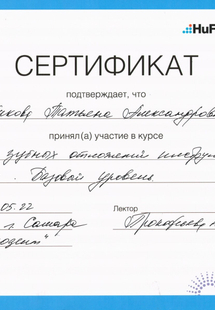 HuF
СЕРТИФИКАТ
подтверждает, что
Татьяна Александровн
принял(а) участие в курсе
зубных отложений инстру
Базовый уровень
05.22
Лектор
г Самара
Прокофьев
дент"